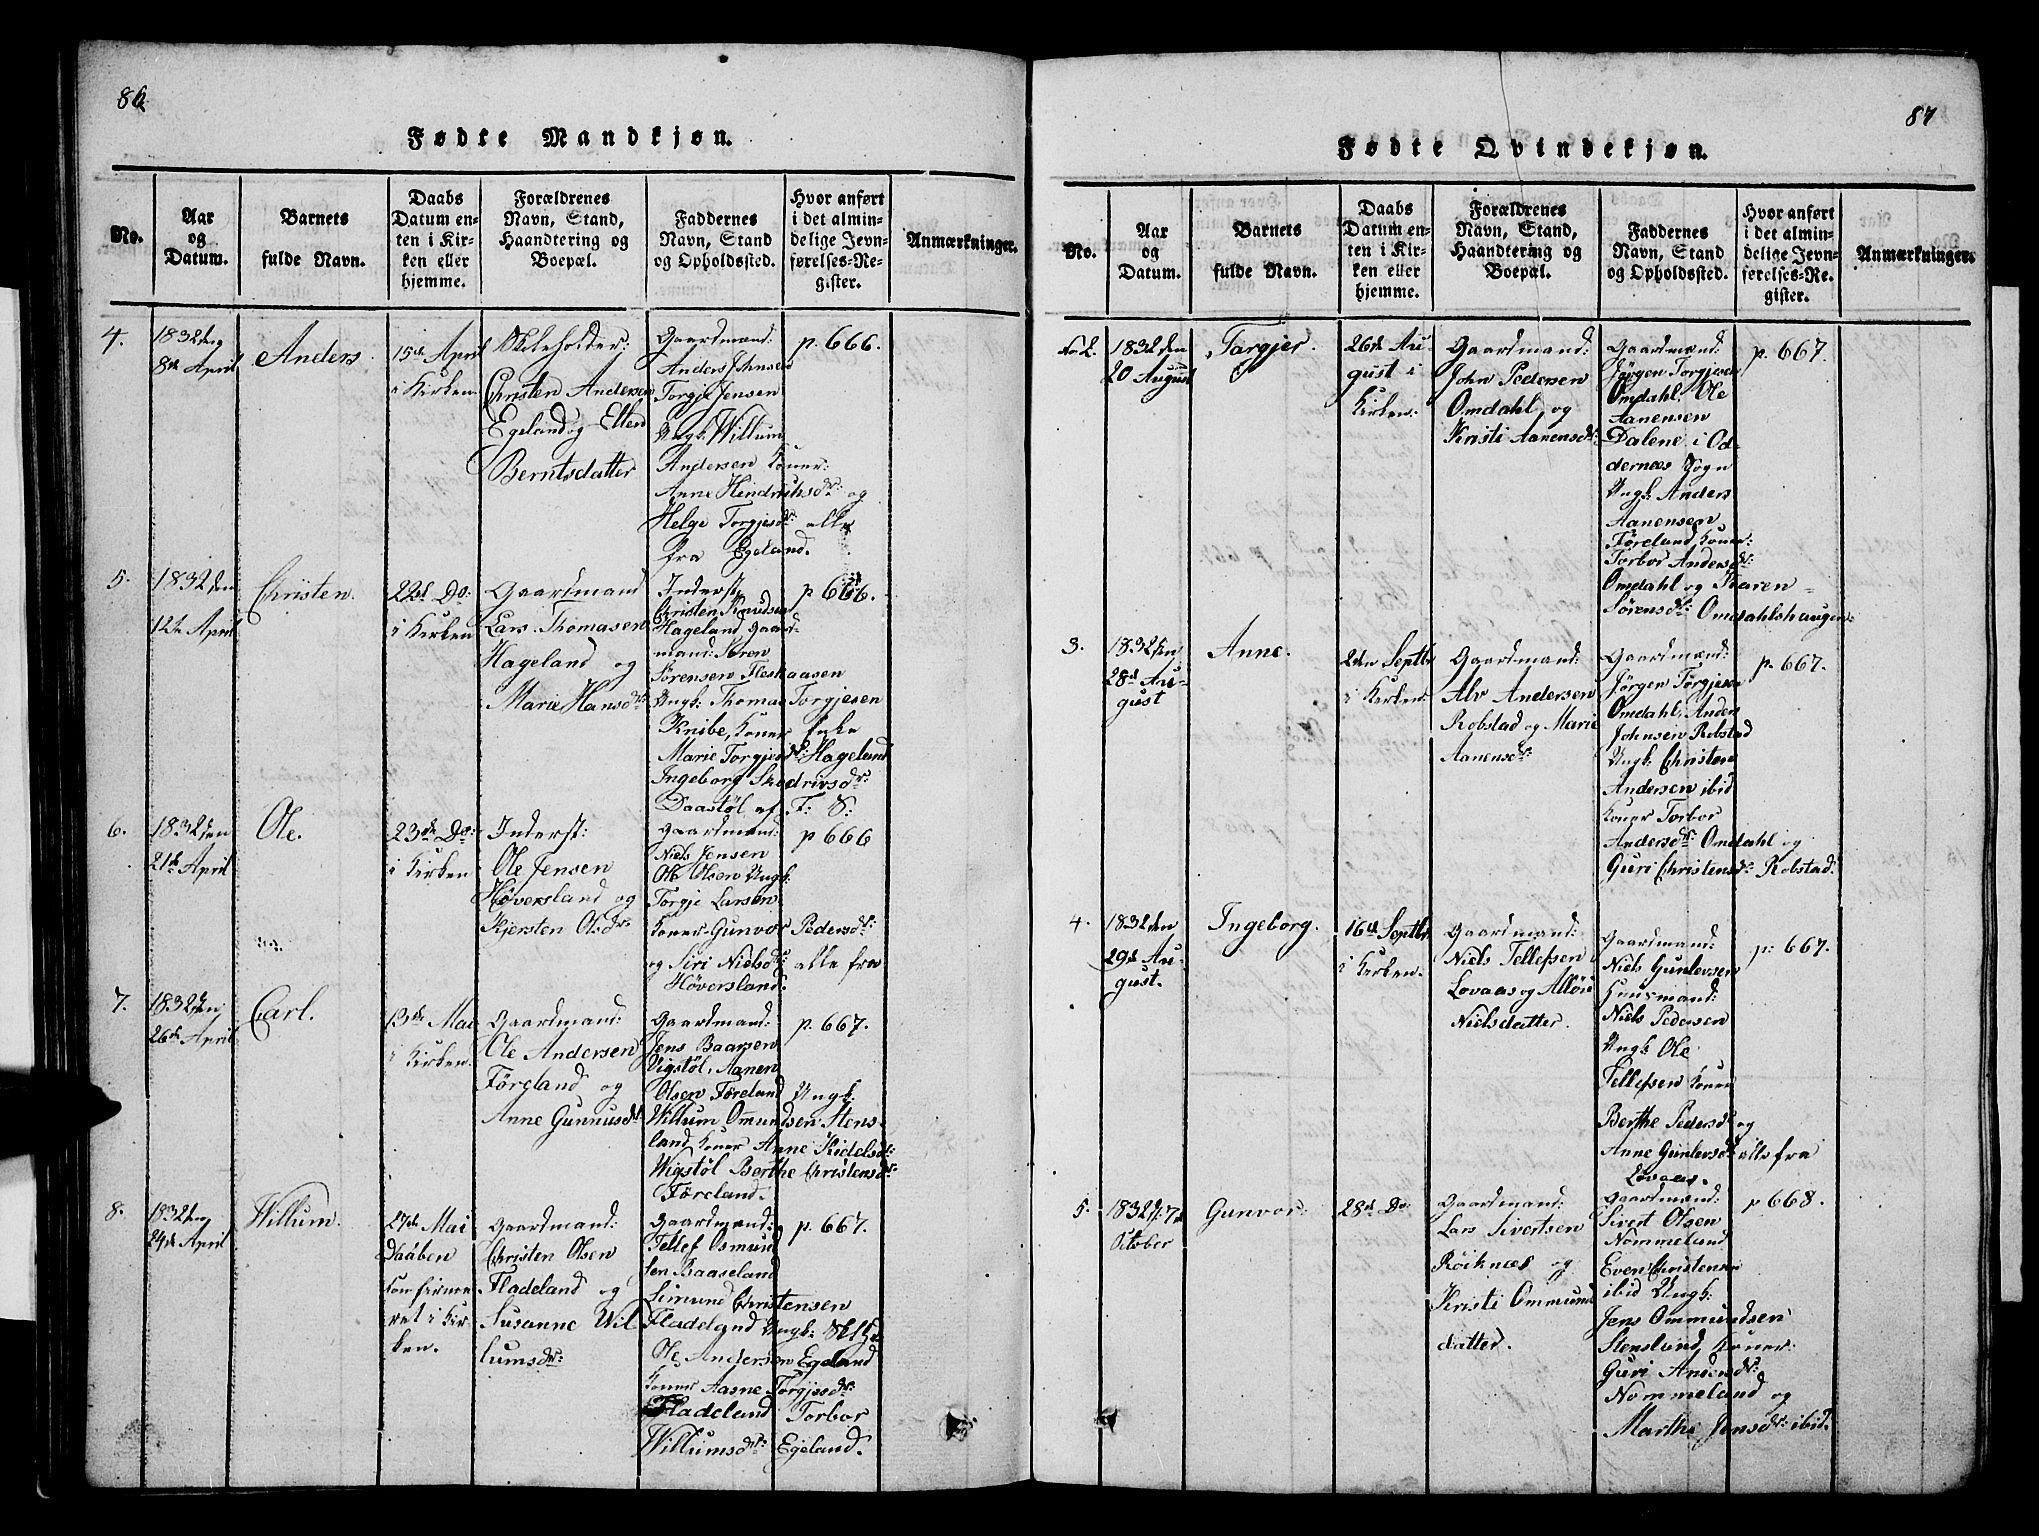 86
Fødte Mandkjøn.
No.
Aar
og
Datum.
Barnets
fulde Navn.
Daabs
Datum en-
ten i Kir-
ken eller
hjemme.
Forældrenes
Navn, Stand,
Haandtering og
Boepæl.
Faddernes
Navn, Stand
og Opholdssted.
Hvor anført
i det almin-
delige Jevn-
førelses-Re-
gister.
Anmærkninger.
4.
1832 den
8de April
Anders.
15de April
i Kirken
Skoleholder:
Christen Andersen
Egeland og Ellen
Berntsdatter
Gaardmænd:
Anders Johnsen
Torgje Jensen
Ungk: Willum
Andersen Koner:
Anne Hendrichsdr: og
Helge Torgjesdr: alle
fra Egeland.
p. 666.
5.
1832 den
12te April
Christen.
22de Do:
i Kirken
Gaardmand
Lars Thomasen
Hageland og
Marie Hansdr:
Inderst,
Christen Knudsen
Hageland Gaard-
mand: Søren
Sørensen Fleskaasen
Ungk: Thomas Torgjesen
Knibe, Koner Enke
Marie Torgjesdr: Hageland
Ingeborg Skedrivsdr:
Daastøl af F: S:
p 666.
6.
1832 den
21de April
Ole.
23de Do:
i Kirken
Inderst:
Ole Jensen
Høversland og
Kjersten Olsdr
Gaardmænd:
Niels Jensen
Ole Olsen Ungk:
Torgje Larsen
Koner Gunvor Pedersdr:
og Siri Nielsdr: alle fra
Høversland.
p 666
7.
1832 den
26de April
Carl.
13de Mai
i Kirken.
Gaardmand:
Ole Andersen
Föreland og
Anne Gunnusdr
Gaardmænd:
Jens Baarsen
Vigstøl, Aanen
Olsen Föreland Ungk:
Willum Omundsen Stens-
land, Koner Anne Kidelsdr:
Wigstøl Berthe Christensdr:
Föreland.
p. 667.
8.
1832 den
24de April
Willum.
27de Mai
Daaben
confirme
ret i Kir-
ken.
Gaardmand:
Christen Olsen
Fladeland og
Susanne Wil
lumsdr:
Gaardmænd:
Tellef Osmund
sen Baaseland
Simund Christensen
Fladeland Ungk:
Ole Andersen Egeland
Koner Aasne Torgjesdr:
Fladeland Torbor
Willumsdr: Egeland.
p. 667.
87
Fødte Qvindekjøn.
No.
Aar
og
Datum.
Barnets
fulde Navn.
Daabs
Datum en-
ten i Kir-
ken eller
hjemme.
Forældrenes
Navn, Stand,
Haandtering og
Boepæl.
Faddernes
Navn, Stand
og Opholdssted.
Hvor anført
i det almin-
delige Jevn-
førelses-Re-
gister.
Anmærkninger.
No 2.
1832 den
20 August
Targjer.
26de Au-
gust i
Kirken:
Gaardmand:
John Pedersen
Omdahl og
Kristi Aanensdr:
Gaardmænd:
Jörgen Torgjesen
Omdahl, Ole
Aanensen
Dalene i Od-
dernæs Sogn
Ungk: Anders
Aanensen
Föreland, Koner:
Torbor Andersdr:
Omdahl og Karen
Sörensdr: Omdahlshaugen
p. 667.
3.
1832 den
28de Au-
gust
Anne.
2den Septbr
i Kirken
Gaardmand:
Alv Andersen
Robstad og Marie
Aanensdr:
Gaardmænd:
Jörgen Torgjesen
Omdahl, Anders
Johnsen Robstad
Ungk: Christen
Andersen ibid
Koner Torbor
Andersdr: Omdahl og
Guri Christensdr Robstad.
p. 667.
4.
1832 den
29de Au-
gust.
Ingeborg.
16de Septbr
i Kirken.
Gaardmand:
Niels Tellefsen
Lovaas og
Nielsdatter.
Gaardmand:
Niels Gunlevsen
Huusmand:
Niels Pedersen
Ungk: Ole
Tellefsen Koner
Berthe Pedersdr og
Anne Gunlevsdr alle fra
Lovaas.
p: 667.
5.
1832 d: 7de
October
Gunvor.
28de Do
Gaardmand:
Lars Sivertsen
Röiknæs og
Kristi Ommund
datter.
Gaardmænd:
Sivert Olsen
Nommeland
Even Christensen
ibid Ungk:
Jens Ommundsen
Stensland, Koner:
Guri Andersdr:
Nommeland og
Marthe Jensdr: ibid.
p 668.